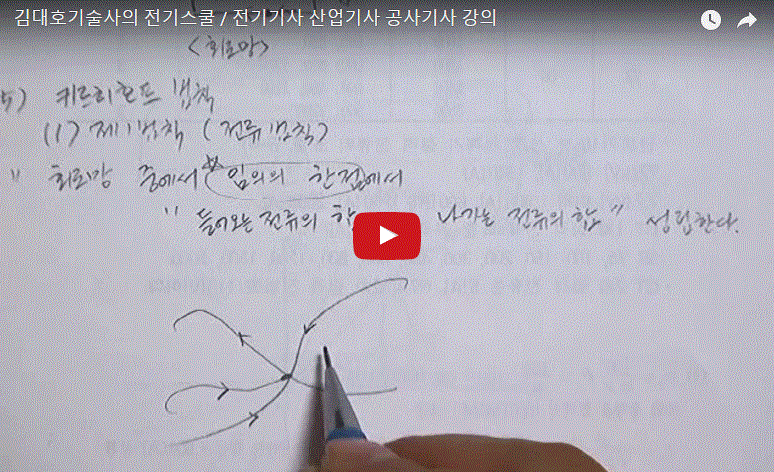 김대호기술사의 전기스쿨 / 전기기사 산업기사 공사기사 강의
<회로망>
5) 키르히호프 법칙
(1) 제1법칙 (전류법칙)
" 회로망 중에서 임의의 한점에서
" 들어오는 전류의 합 나가는 전류의 합 " 성립한다.